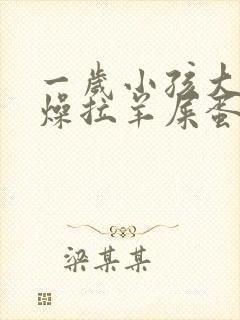 一歲小孩大
燥拉羊屎蛋
梁某某